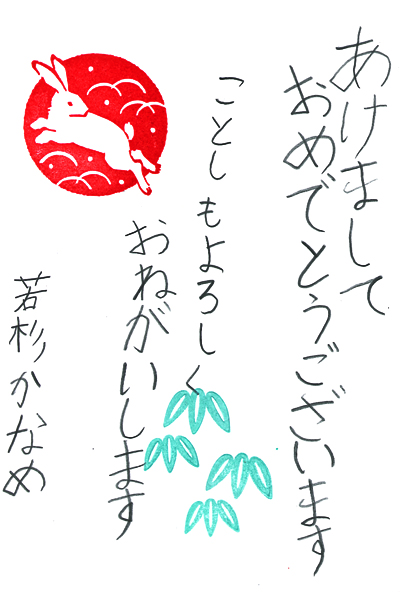 あけまして
おめでとうございます
ことしもよろしく
おねがいします
若杉かなめ